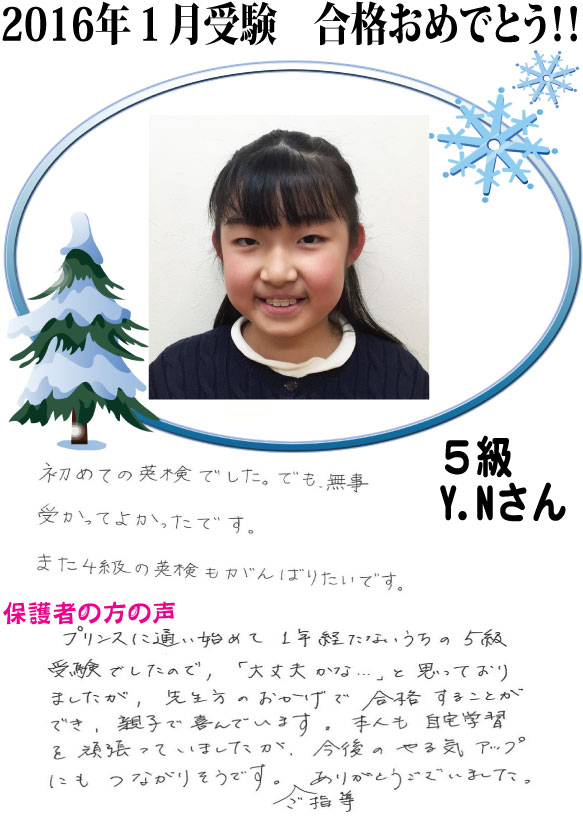 2016年１月受験　合格おめでとう!!
５級
Y.Nさん
初めての英検でした。でも、無事
受かってよかったです。
また4級の英検もがんばりたいです。
保護者の方の声
プリンスに通い始めて1年経たないうちの5級
受験でしたので,「大丈夫かな…」と思っており
ましたが, 先生方のおかげで合格することが
でき, 親子で喜んでいます。本人も自宅学習
を頑張っていましたが、今後のやる気アップ
にもつながりそうです。ありがとうございました。
ご指導